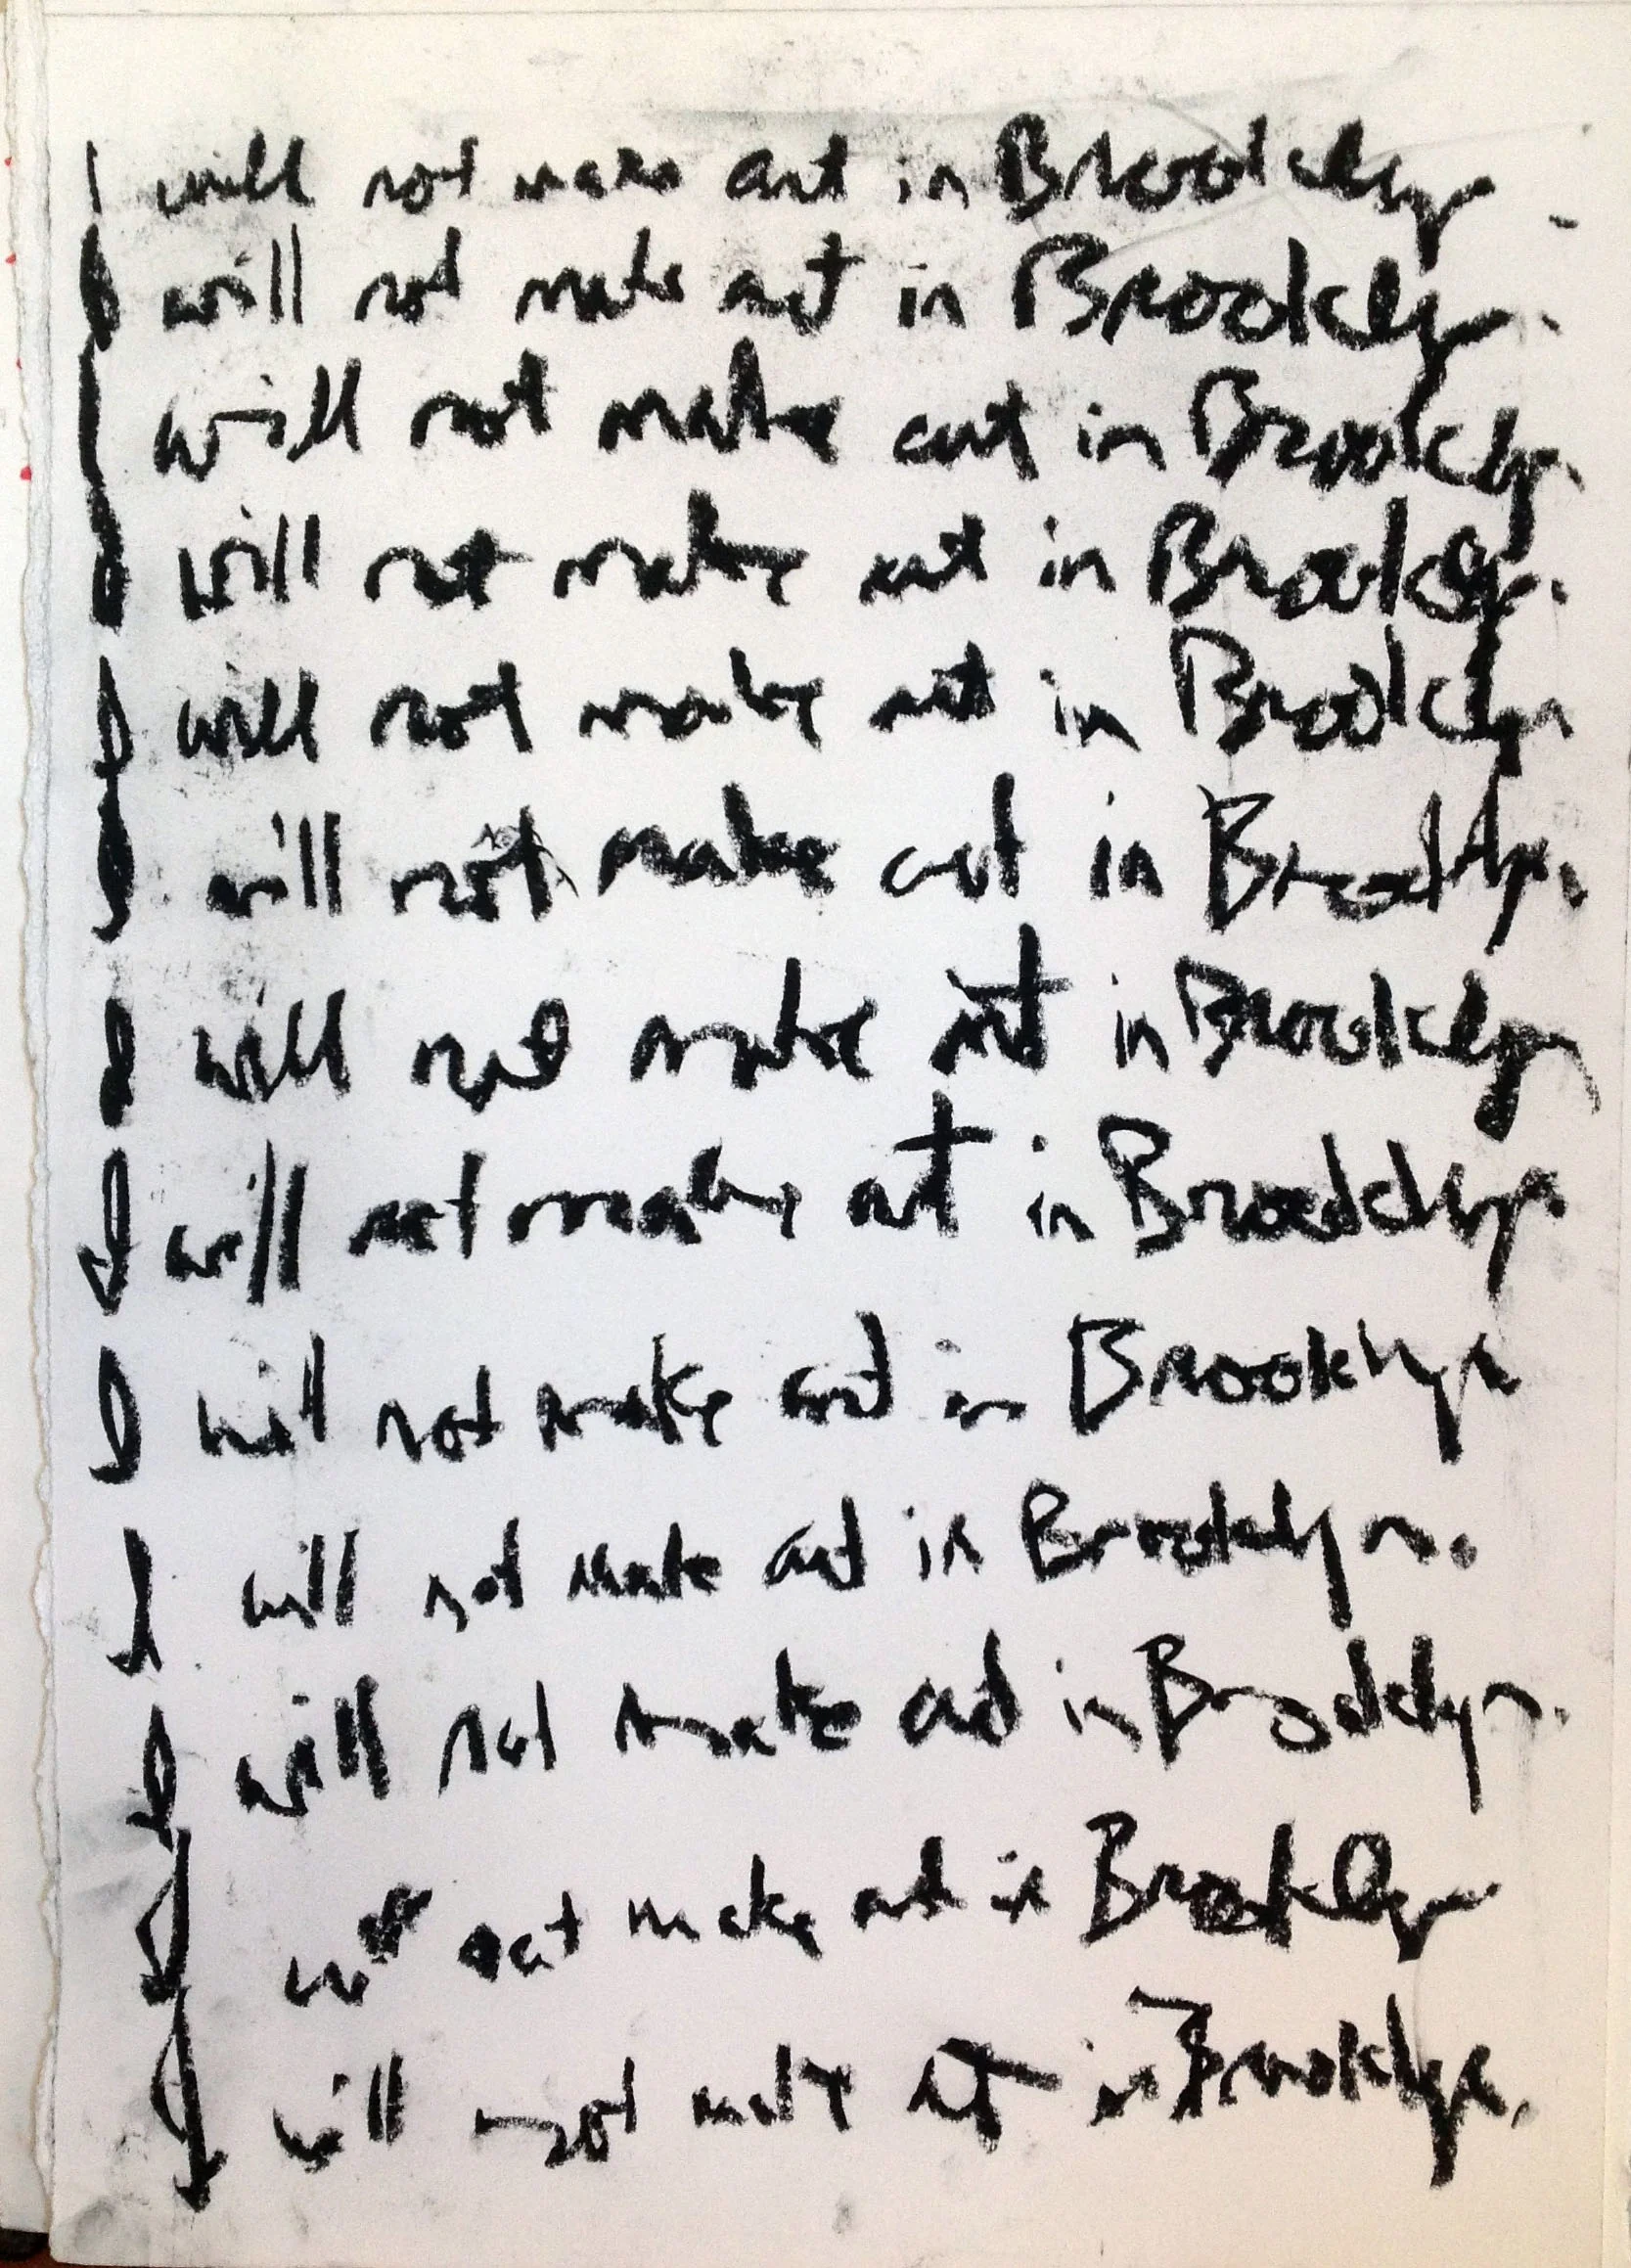 I will not make art in Brooklyn.
I will not make art in Brooklyn.
I will not make art in Brooklyn.
I will not make art in Brooklyn.
I will not make art in Brooklyn
I will not make art in Brooklyn.
I will not make art in Brooklyn
I will not make art in Brooklyn.
I will not make art in Brooklyn
I will not make art in Brooklyn.
I will not make art in Brooklyn.
I will not make art in Brooklyn
I will not make art in Brooklyn.